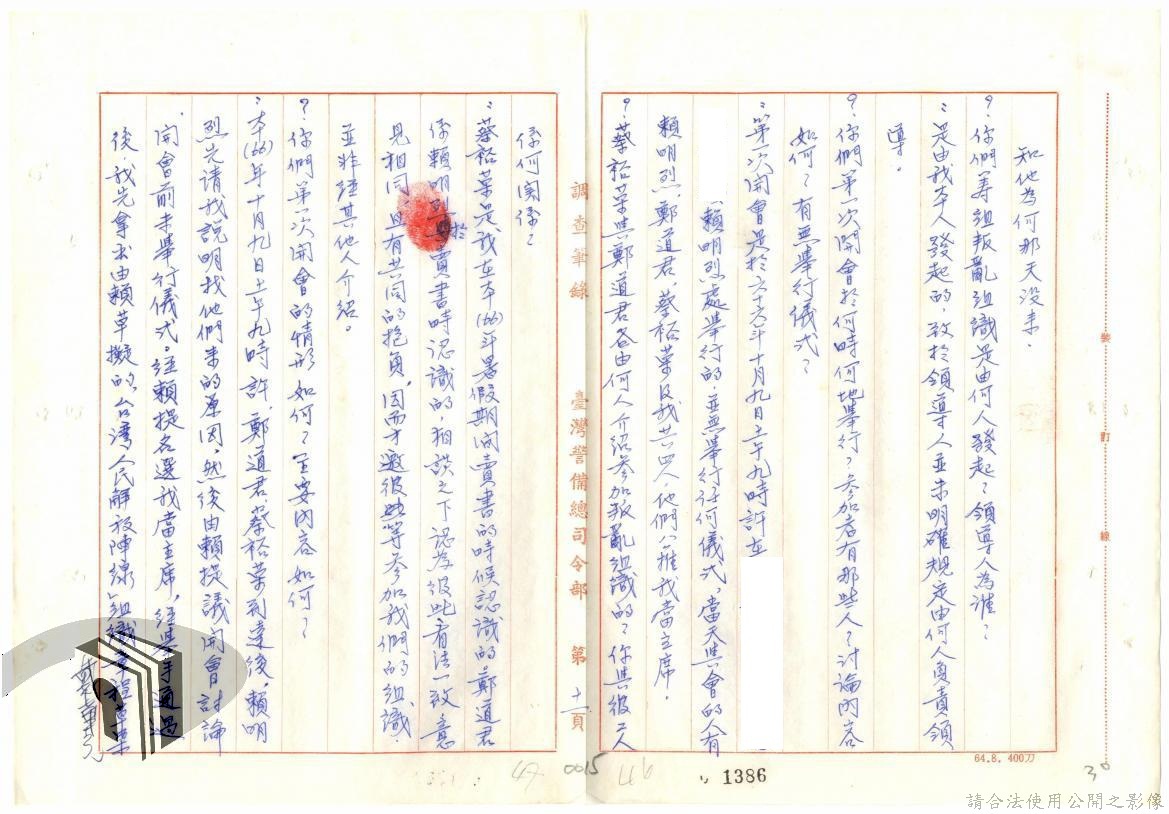 知他為何那天沒來。
？你們籌組叛亂組識是由何人發起？領導人為誰？
：是由我本人發起的，致於領導人並未明確規定由何人負責領
導。
？你們第一次開會於何時何地舉行？參加者有那些人？討論內容
如何？有無舉行儀式？
：第一次開會是於六十六年十月九日上午九時許在
賴明烈處舉行的，並無舉行任何儀式，當天與會的人有
賴明烈、鄭道君、蔡裕榮及我共四人，他們公推我當主席。
？蔡裕榮與鄭道君各由何人介紹參加叛亂組識的？你與彼二人
調查筆錄 臺灣警備總司令部 第十一頁
係何關係？
：蔡裕榮是我在本(66)年暑假期間賣書的時候認識的，鄭道君
係賴明烈於賣書時認識的，相談之下認為彼此看法一致，意
見相同，且有共同的抱負，因而才邀彼等參加我們的組識，
並非經其他人介紹。
？你們第一次開會的情形如何？主要內容如何？
：本(66)年十月九日上午九時許，鄭道君、蔡裕榮到達後，賴明
烈先請我說明找他們來的原因，然後由賴提議開會討論
，開會前未舉行儀式。經賴提名選我當主席，經舉手通過
後，我先拿出由賴草擬的「台灣人民解放陣線」組織章程草案
裝訂線
64.8. 400刀
1386
0015
46
47
30
請合法使用公開之影像